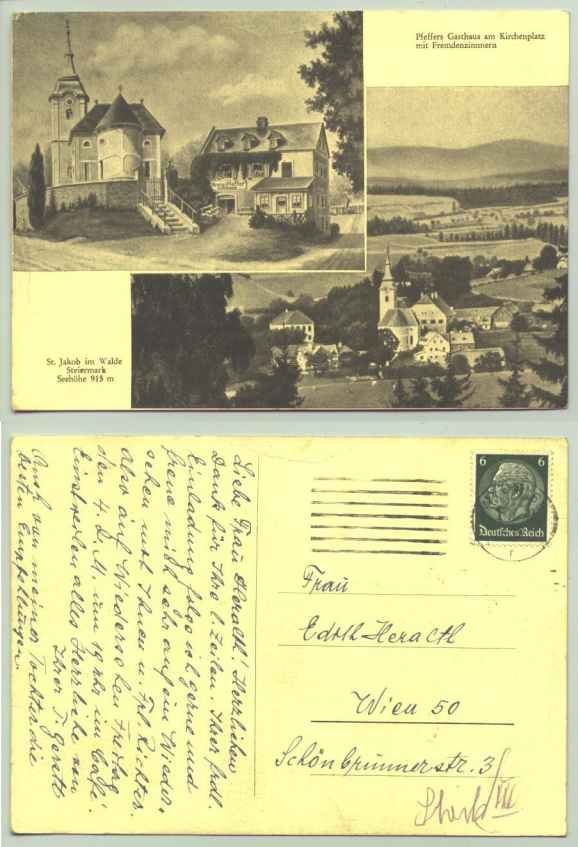 Pfeffers Gasthaus am Kirchenplatz
mit Fremdenzimmern
St. Jakob im Walde
Steiermark
Seehöhe 915 m
Liebe Frau Heracth! Herzlichen
Dank für Ihre l. Zeilen. Ihrer frdl.
Einladung folge ich gerne und
freue mich sehr auf ein Wieder-
sehen mit Ihnen u. Frl. Richter.
Also auf Wiedersehen Freitag
den 4. d. M. um 19 Uhr im Café.
Einstweilen alles Herzliche von
Ihrer
Auch von meiner Tochter die
besten Empfehlungen.
6 6
Deutsches Reich
Frau
Edith Heracth
Wien 50
Schönbrunnerstr. 3/
III